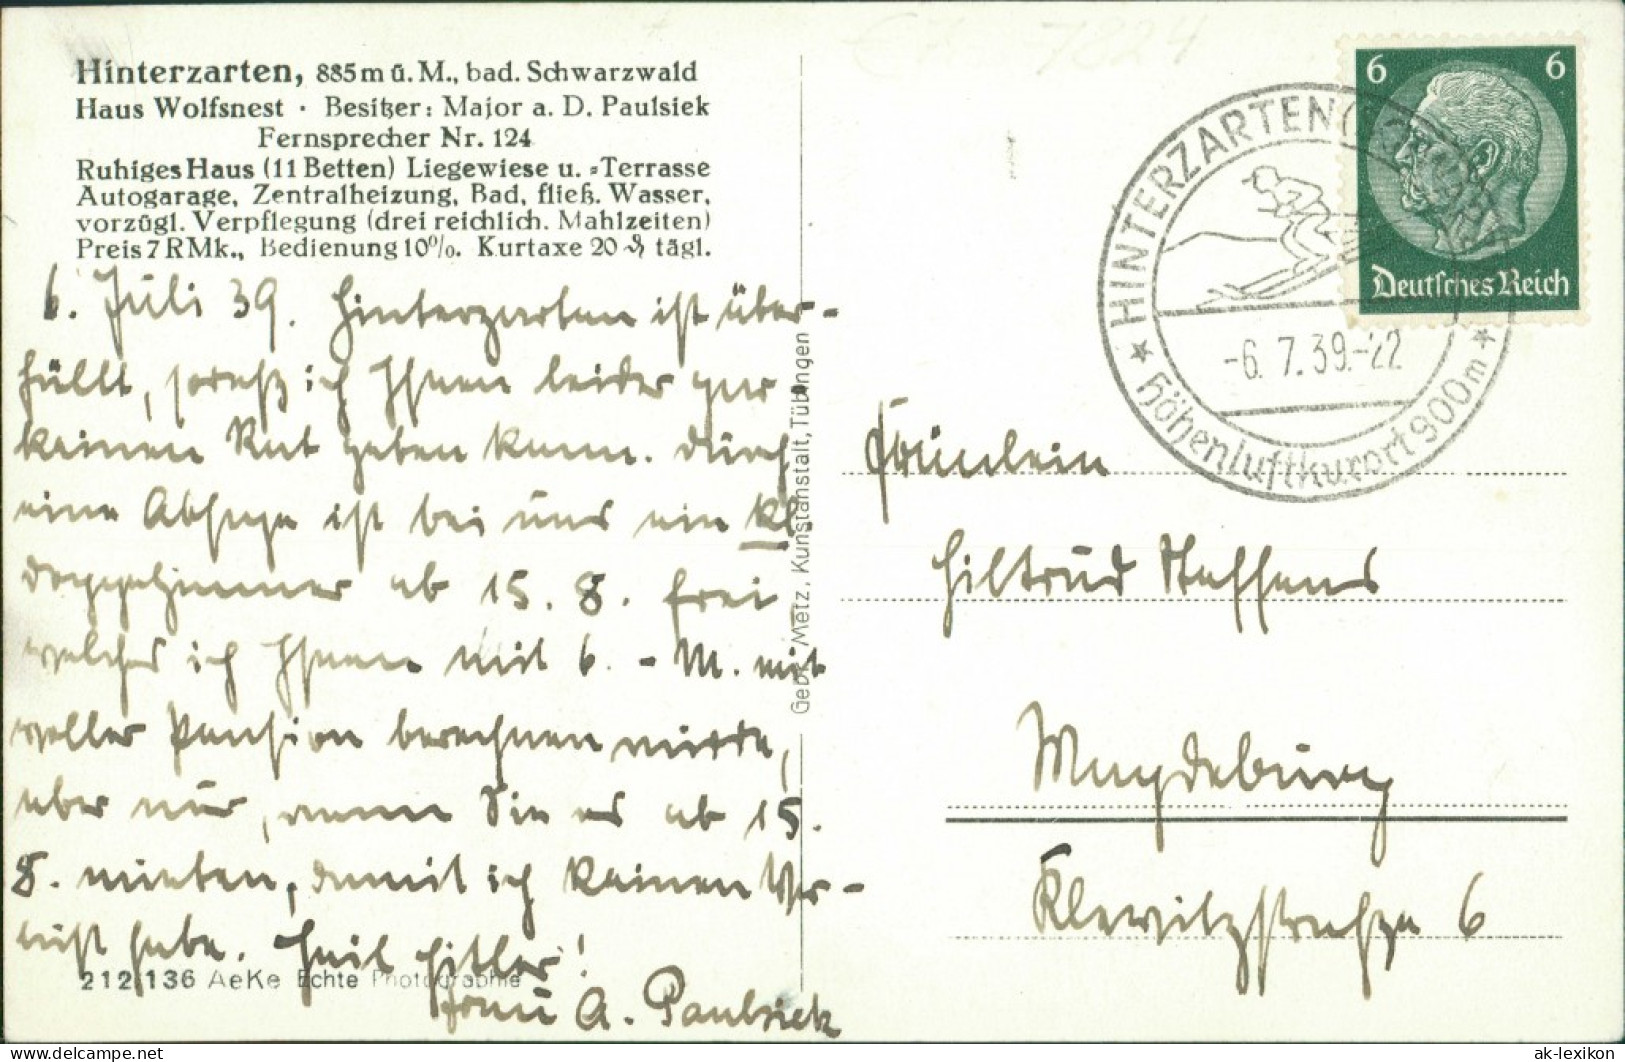 Hinterzarten, 885 m ü. M., bad. Schwarzwald
Haus Wolfsnest · Besitzer: Major a. D. Paulsiek
Fernsprecher Nr. 124
Ruhiges Haus (11 Betten) Liegewiese u. -Terrasse
Autogarage, Zentralheizung, Bad, fließ. Wasser,
vorzügl. Verpflegung (drei reichlich. Mahlzeiten)
Preis 7 RMk., Bedienung 10%. Kurtaxe 20 ₰ tägl.
6. Juli 39. Hinterzarten ist über-
füllt, sodaß ich Ihnen leider gar
keinen Rat geben kann. Durch
eine Absage ist bei uns ein kl.
Doppelzimmer ab 15. 8. frei
welches ich Ihnen mit 6. - M. mit
voller Pension berechnen würde,
aber nur, wenn Sie es ab 15.
8. mieten, damit ich keinen Ver-
lust habe. Heil Hitler!
Frau A. Paulsiek
212 136 AeKe Echte Photographie
Gebr. Metz, Kunstanstalt, Tübingen
7824
6 6
Deutsches Reich
HINTERZARTEN (SCHWARZW)
-6. 7. 39.-22
Höhenluftkurort 900m
Fräulein
Hiltrud Steffens
Magdeburg
Klewitzstraße 6
ak-ansichtskarten.de
ak-lexikon